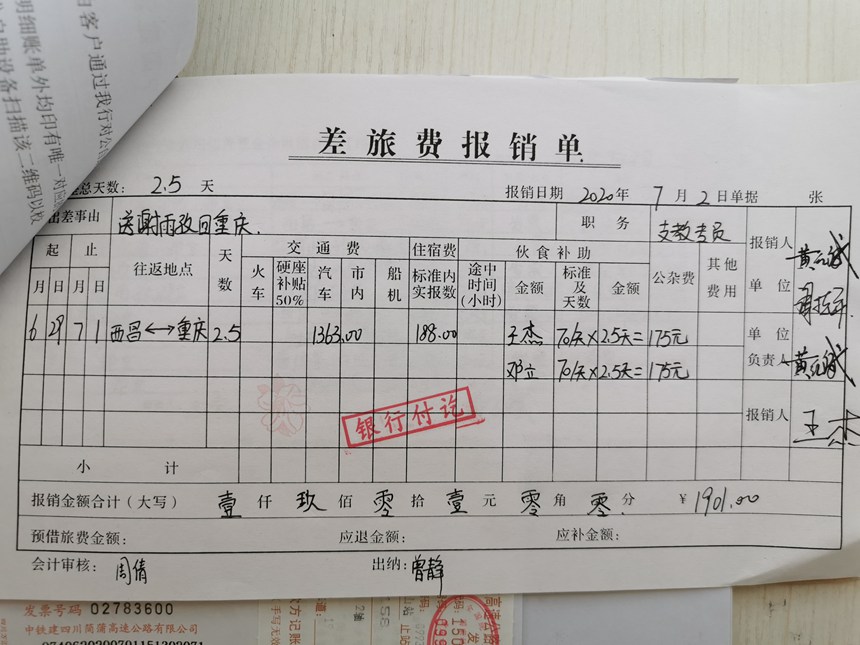 由客户通过我行对公
明细账单外均印有唯一对应
自助设备扫描该二维码以校
差旅费报销单
总天数： 2.5 天
报销日期 2020年 7月 2日 单据 张
出差事由 送谢雨孜回重庆.
职务 支教专员
报销人
起 止 往返地点 天数 交通费 住宿费 伙食补助 公杂费 其他费用
单位
月 日 月 日 火车 硬座补贴50% 汽车 市内 船机 标准内实报数 途中时间(小时) 金额 标准及天数 金额
6 29 7 1 西昌<->重庆 2.5 1363.00 188.00 王杰 70/天×2.5天= 175元
单位负责人
邓立 70/天×2.5天= 175元
银行付讫
报销人 王杰
小计
报销金额合计(大写) 壹仟 玖佰 零拾 壹元 零角 零分. ¥1901.00
预借旅费金额: 应退金额: 应补金额:
会计审核: 周倩 出纳: 曾静
发票号码 02783600
中铁建四川简蒲高速公路有限公司